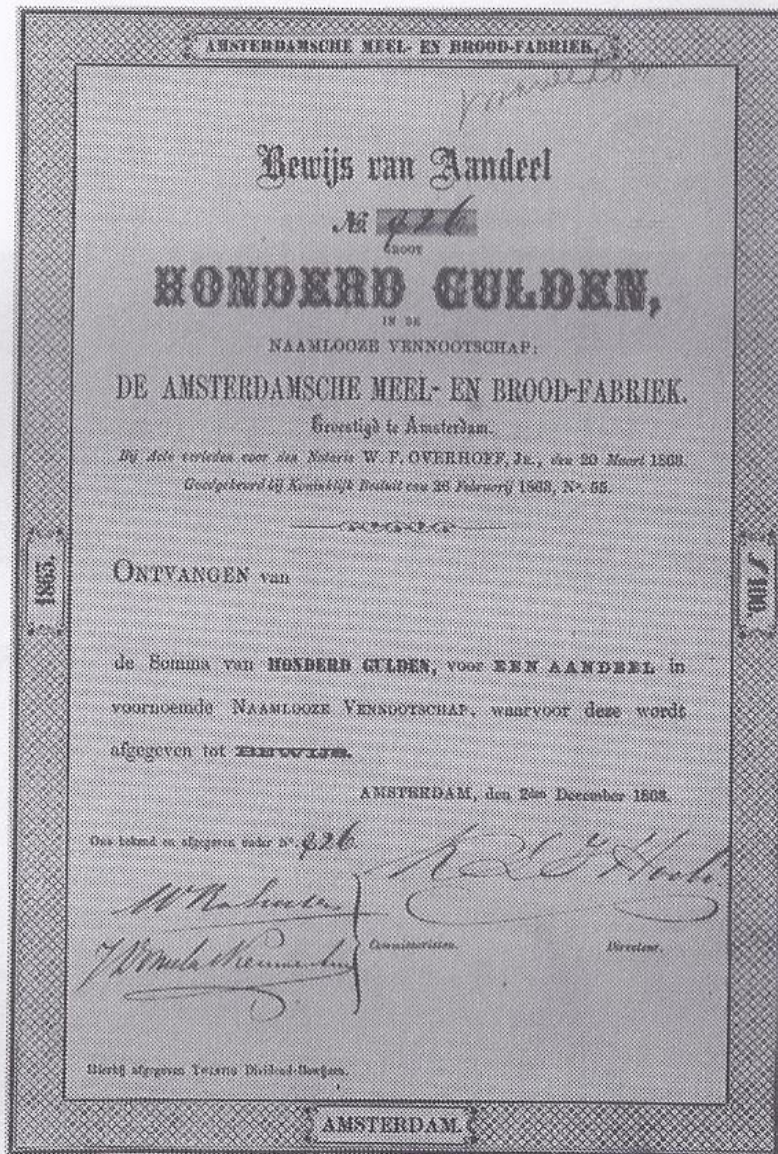 AMSTERDAMSCHE MEEL- EN BROOD-FABRIEK.
Bewijs van Aandeel
No. 926
GROOT
HONDERD GULDEN,
IN DE
NAAMLOOZE VENNOOTSCHAP:
DE AMSTERDAMSCHE MEEL- EN BROOD-FABRIEK.
Gevestigd te Amsterdam.
Bij Acte verleden voor den Notaris W. F. OVERHOFF, JR., den 20 Maart 1863.
Goedgekeurd bij Koninklijk Besluit van 26 Februarij 1863, No. 55.
1863.
f 100.
ONTVANGEN van
de Somma van HONDERD GULDEN, voor EEN AANDEEL in
voornoemde NAAMLOOZE VENNOOTSCHAP, waarvoor deze wordt
afgegeven tot BEWIJS.
AMSTERDAM, den 2den December 1863.
Ons bekend en afgegeven onder No. 926.
Commissarissen.
Directeur.
Hierbij afgegeven TWINTIG Dividend-Bewijzen.
AMSTERDAM.